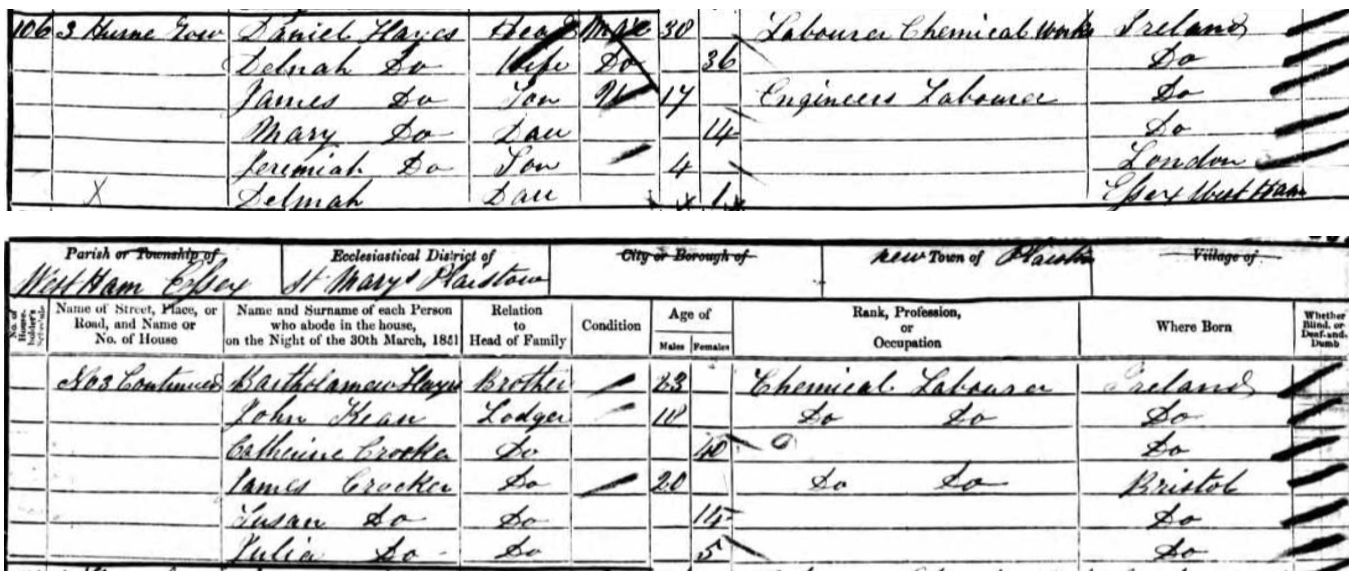 106 3 Hurne Row Daniel Hayes Head Mar 38 Labourer Chemical Works Ireland
Delnah Do Wife Do 36 Do
James Do Son U 17 Engineers Labourer Do
Mary Do Dau 14 Do
Jeremiah Do Son 4 London
X Delnah Dau 1 Essex West Ham
Parish or Township of Ecclesiastical District of City or Borough of New Town of Plaistow Village of
West Ham Essex St Marys Plaistow
No. of Householder's Schedule Name of Street, Place, or Road, and Name or No. of House Name and Surname of each Person who abode in the house, on the Night of the 30th March, 1851 Relation to Head of Family Condition Age of Males Females Rank, Profession, or Occupation Where Born Whether Blind, or Deaf-and-Dumb
No 3 Continued Bartholamew Hayes Brother 23 Chemical Labourer Ireland
John Kean Lodger 18 Do Do Do
Catherine Crocker Do 40 Do
James Crocker Do 20 Do Do Bristol
Susan Do Do 14 Do
Julia Do Do 5 Do